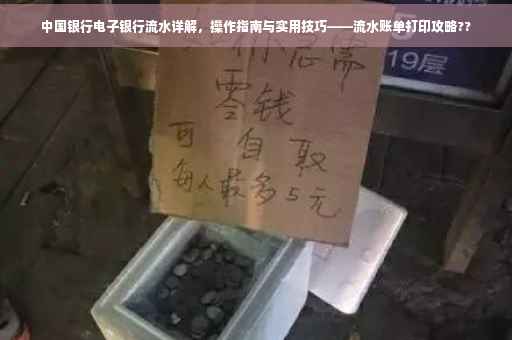 中国银行电子银行流水详解，操作指南与实用技巧——流水账单打印攻略??
你急需
零钱
可自取
每人最多5元
19层